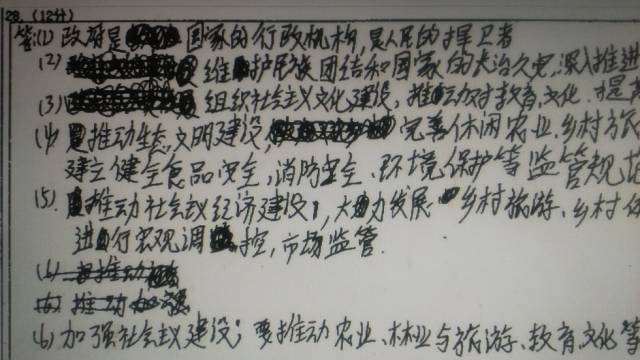 28. (12分)
答:(1) 政府是国家的行政机构,是人民的捍卫者
(2) 维护民族团结和国家的长治久安,深入推进
(3) 组织社会主义文化建设,推动对教育、文化、提高
(4) 推动生态文明建设,完善休闲农业、乡村旅
建立健全食品安全、消防安全、环境保护等监管规范
(5) 推动社会主义经济建设,大力发展乡村旅游、乡村
进行宏观调控,市场监管.
(6) 推动
(6) 推动加强
(6) 加强社会主义建设;要推动农业、林业与旅游、教育、文化等